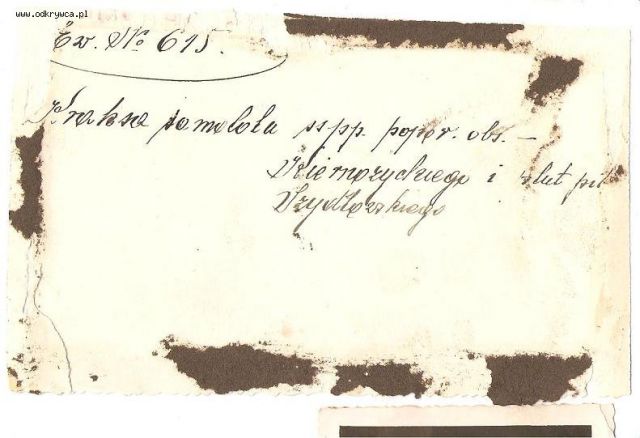 www.odkrywca.pl
Ew. No 615.
Kraksa samolotu ś.p. ppor. obs. –
i plut pil
Szydłowskiego